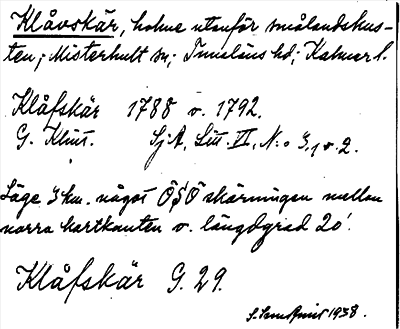 Klåvskär, holme utanför smålandskus-
ten; Misterhult sn; Tunaläns hd; Kalmar l.
Klåfskär 1788 o. 1792.
G. Klint. SjA, Litt. VI, N:o 3, 1 o. 2.
Läge 3 km. något ÖSÖ skärningen mellan
norra kartkanten o. längdgrad 20'.
Klåfskär G. 29.
1938.